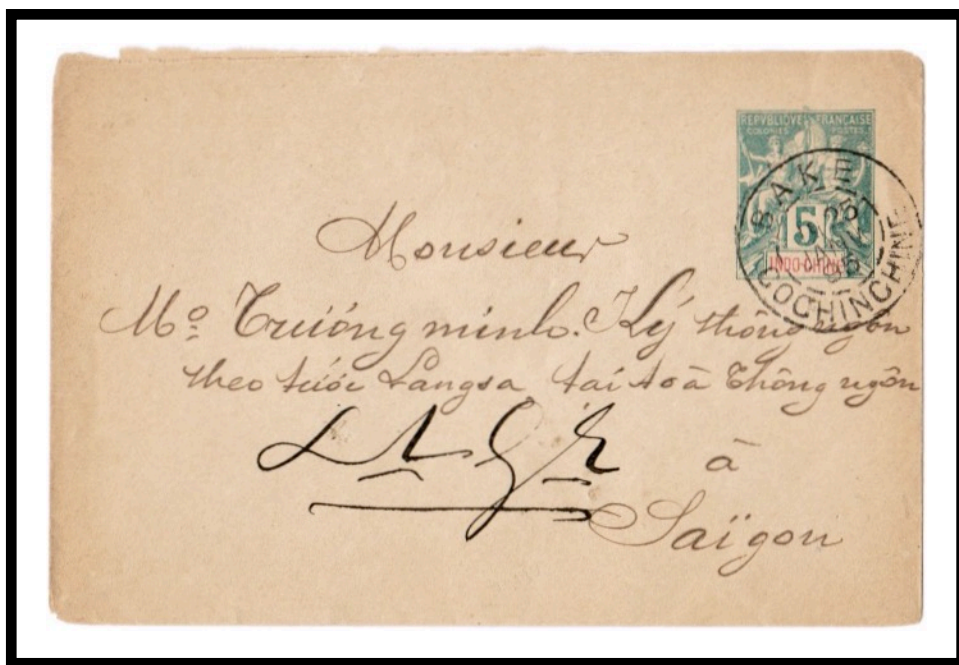 REPVBLIQVE FRANÇAISE
COLONIES POSTES
5
INDO-CHINE
BAKE
25
JANV
COCHINCHINE
Monsieur
Mo Trúông minh. Ký thông ngôn
theo túôc Langsa tai toà Thông ngôn
à
Saïgon